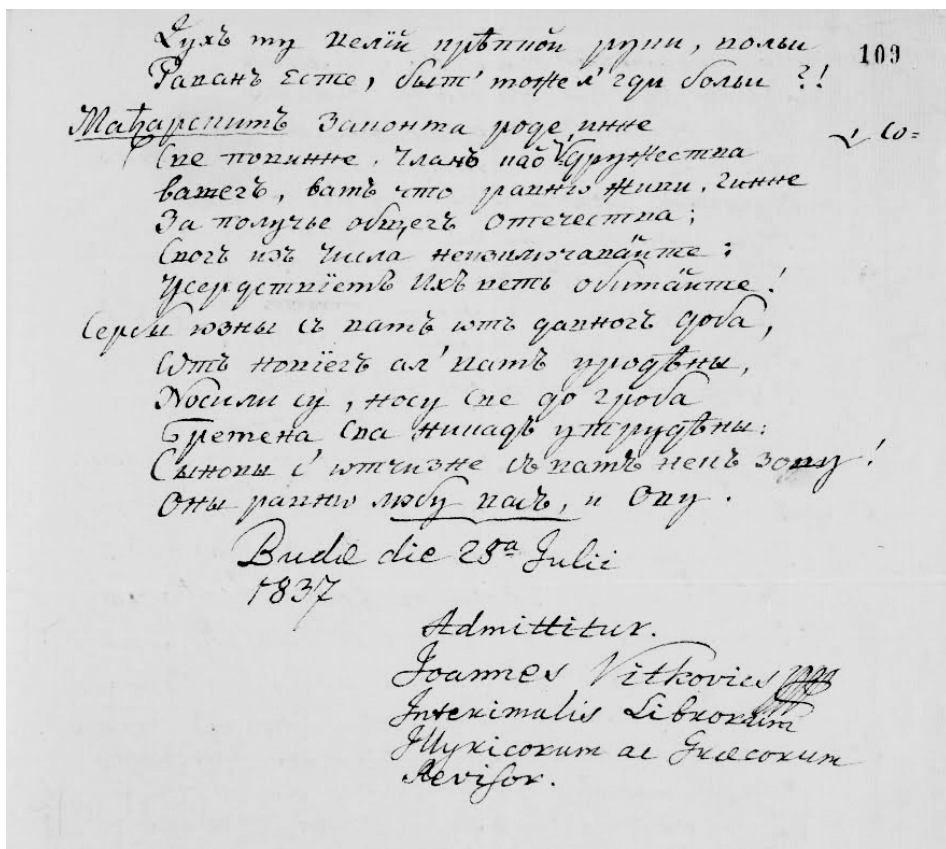 Духъ му велїй крѣпкой руки, кольи
Раванъ Есте, быт' може л' гди больи ?!
109
Мађарскимъ Законма роде, инне
Све повинне. Членъ кадъ √ Дружества
√ со=
вашегъ, вамъ что равно живи, чинне
За получье общегъ Отечества;
Свогъ изъ числа неизключавайте:
Усердствїемъ Ихъ већъ обимайте!
Сербљи юзны съ вамъ ѡтъ давногъ доба,
Ѡтъ новїегъ ал' вамъ уродѣны,
Носили су, носу све до гроба
Бремена сва никадъ утрудѣны:
Сыновы с' ѡтчизне съ вамъ већъ зову!
Оны равно любу васъ, и Ову.
Budæ die 28ª Julii
1837
Admittitur.
Joannes Vitkovics
Interimalis Librorum
Illyricorum ac Græcorum
Revisor.